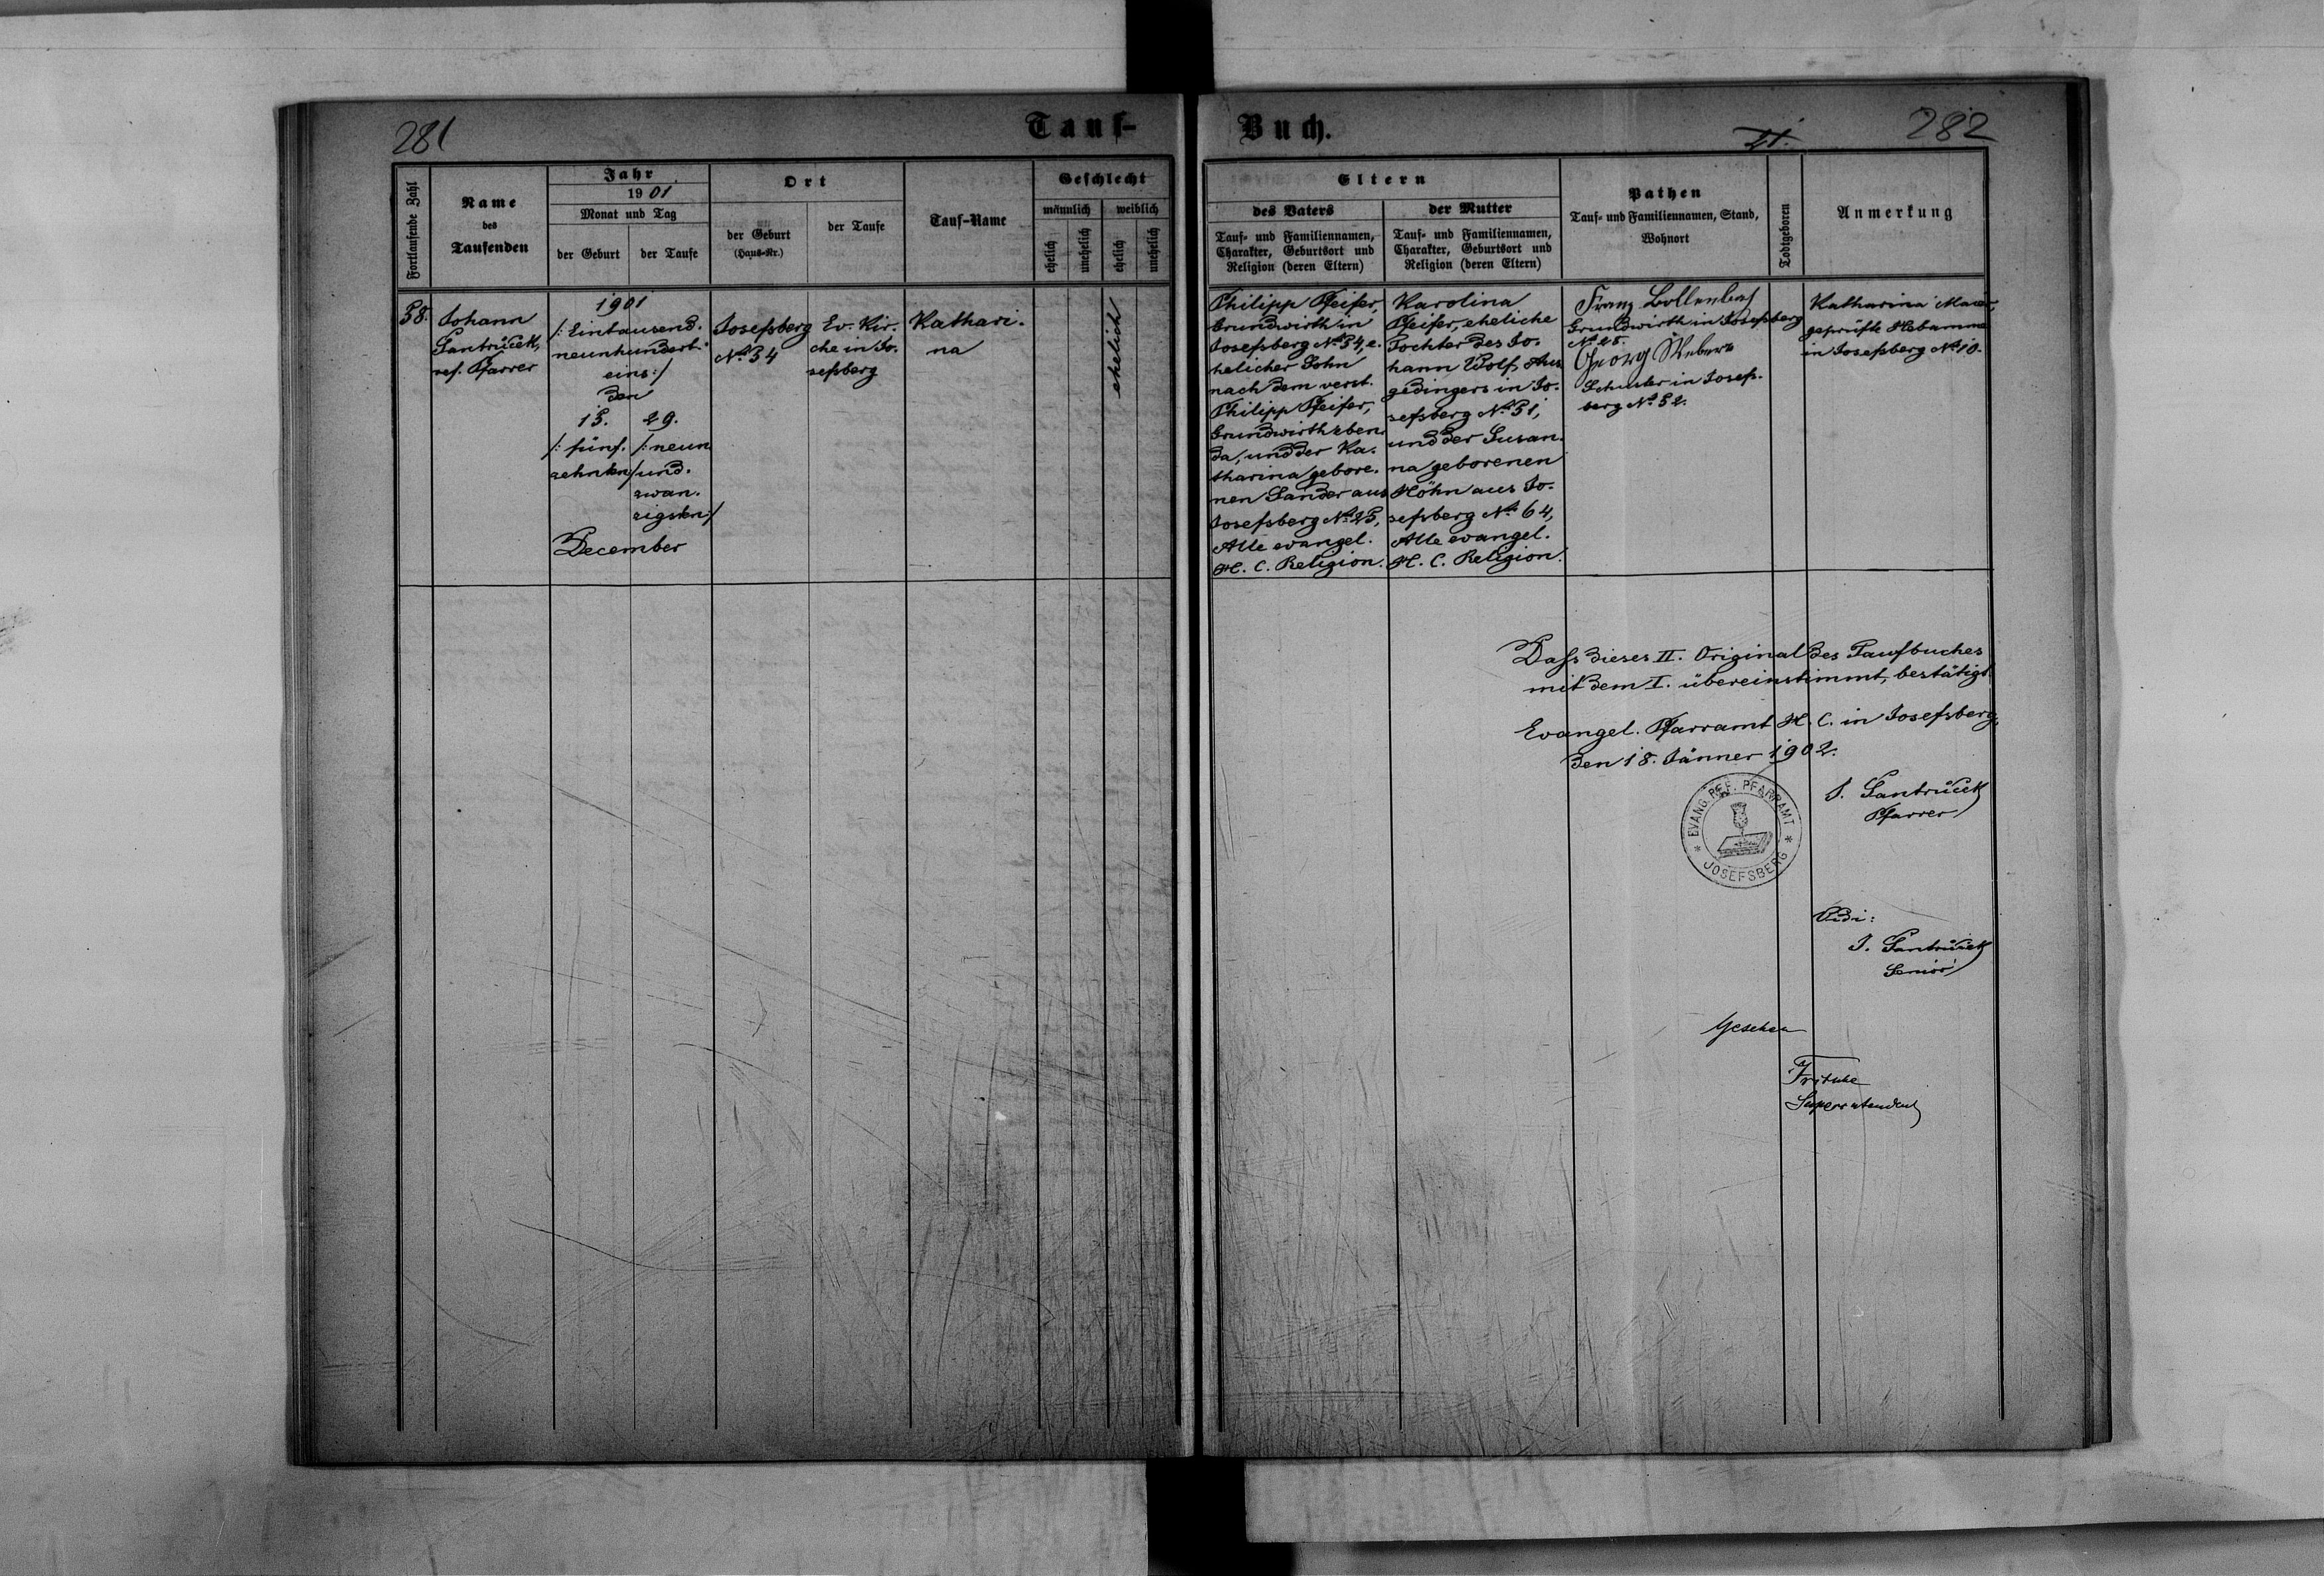 281
Tauf-
Fortlaufende Zahl
Name
des
Taufenden
Jahr
1901
Monat und Tag
der Geburt
der Taufe
Ort
der Geburt
(Haus-Nr.)
der Taufe
Tauf-Name
Geschlecht
männlich
weiblich
ehelich
unehelich
ehelich
unehelich
58.
Johann
Santrůček,
ref. Pfarrer
1901
/: Eintausend-
neunhundert-
eins :/
den
15.
/: fünf-
zehnten :/
29.
/: neun
und-
zwan-
zigsten :/
December
Josefsberg
No 34
Ev. Kir-
che in Jo-
sefsberg
Kathari-
na
ehelich
Buch.
II.
282
Eltern
des Vaters
Tauf- und Familiennamen,
Charakter, Geburtsort und
Religion (deren Eltern)
der Mutter
Tauf- und Familiennamen,
Charakter, Geburtsort und
Religion (deren Eltern)
Pathen
Tauf- und Familiennamen, Stand,
Wohnort
Todtgeboren
Anmerkung
Philipp Pfeifer,
Grundwirth in
Josefsberg No 34, e-
helicher Sohn
nach dem verst.
Philipp Pfeifer,
Grundwirth eben-
da, und der Ka-
tharina gebore-
nen Sander aus
Josefsberg No 25,
Alle evangel.
H. C. Religion.
Karolina
Pfeifer, eheliche
Tochter des Jo-
hann Wolf, Aus-
gedingers in Jo-
sefsberg No 51,
und der Susan-
na geborenen
Höhn aus Jo-
sefsberg No 64,
Alle evangel.
H. C. Religion.
Franz Bollenbach
Grundwirth in Josefsberg
No 28.
Georg Weber
Schuster in Josefs-
berg No 52.
Katharina
geprüfte Hebamme
in Josefsberg No 10.
Dass dieses II. Original des Taufbuches
mit dem I. übereinstimmt, bestätigt
Evangel. Pfarramt H. C. in Josefsberg,
den 18. Jänner 1902.
J. Santrůček
Pfarrer
* EVANG. REF. PFARRAMT * JOSEFSBERG
Vidi:
J. Santrůček
Senior
Gesehen
Fritsche
Superintendent